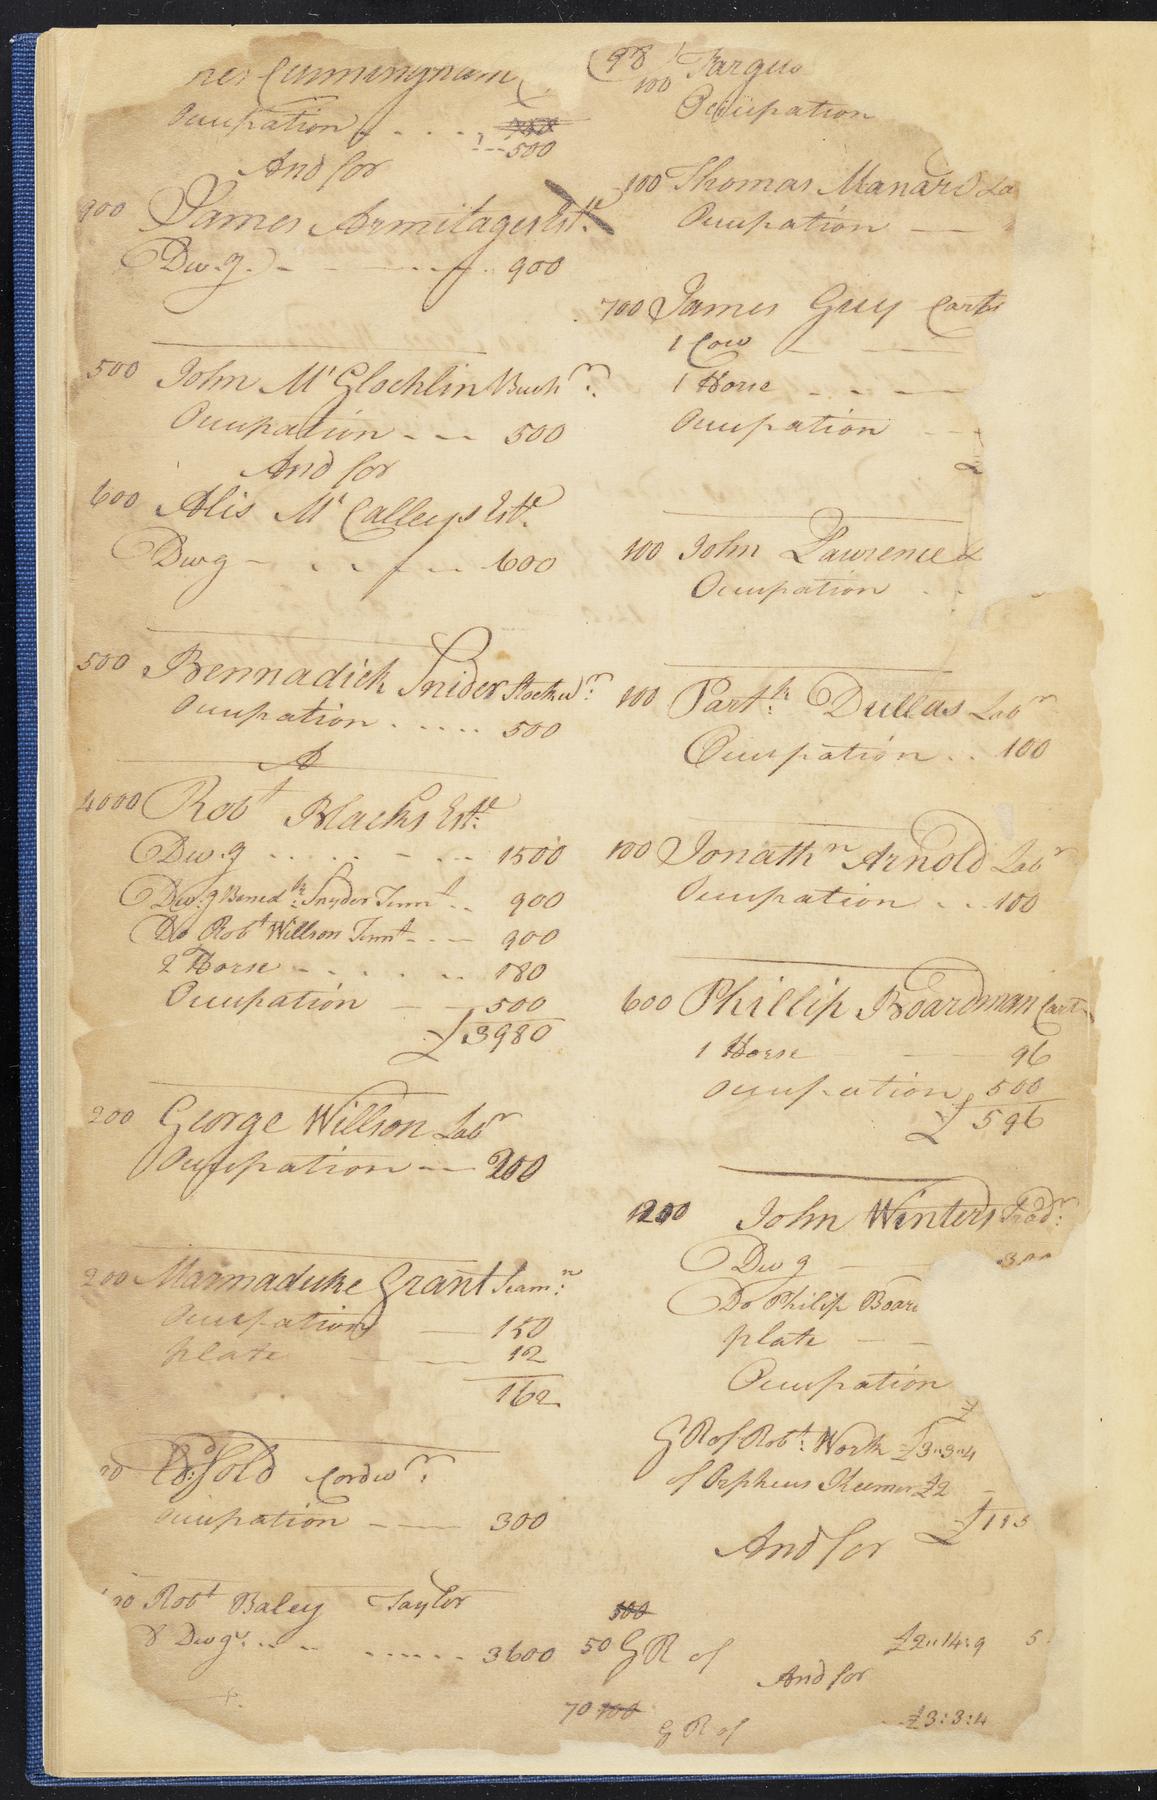 Cunningham
Occupation - - - 500
And for
900 James Armitages Est.e
Dw.g. - - - 900
500 John McGlochlin Buch.r
Occupation - - - 500
And for
600 Alis McCalleys Est.e
Dwg - - - 600
500 Bennadick Snider Stockw.r
Occupation . . . . . 500
A
4000 Robt Blacks Est.e
Dw.g . . . . - - - 1500
Dw.g Bened.k Snyder Tennt . . 900
Do Robt Willson Tennt - - - 900
2 Horse - - - - - 180
Occupation — — 500
£3980
200 George Willson Labr
Occupation - — 200
200 Marmaduke Grant Seam.n
Occupation — 150
plate — — 12
162
Sold Cordw.r
Occupation - — 300
Robt Baley Taylor
8 Dwgs . . . . . . . . 3600
100 Fargus
Occupation
100 Thomas Manard La
Occupation —
700 James Guy Carter
1 Cow — —
1 Horse - - —
Occupation - -
£
100 John Lawrence
Occupation . .
100 Part.k Dullas Labr
Occupation . . 100
100 Jonathn Arnold Labr
Occupation . . 100
600 Phillip Boardman Cart
1 Horse — 96
Occupation 500
£596
1200 John Winters Trad.r
Dwg — 300
Do Philip Boar
plate — —
Occupation
£
G R of Robt: Worth £3"3"4
of Orpheus Keemer £2 -
£113
And for
500
50 G R of £2"14:9 5
And for
70 100 G R of £3:3:4